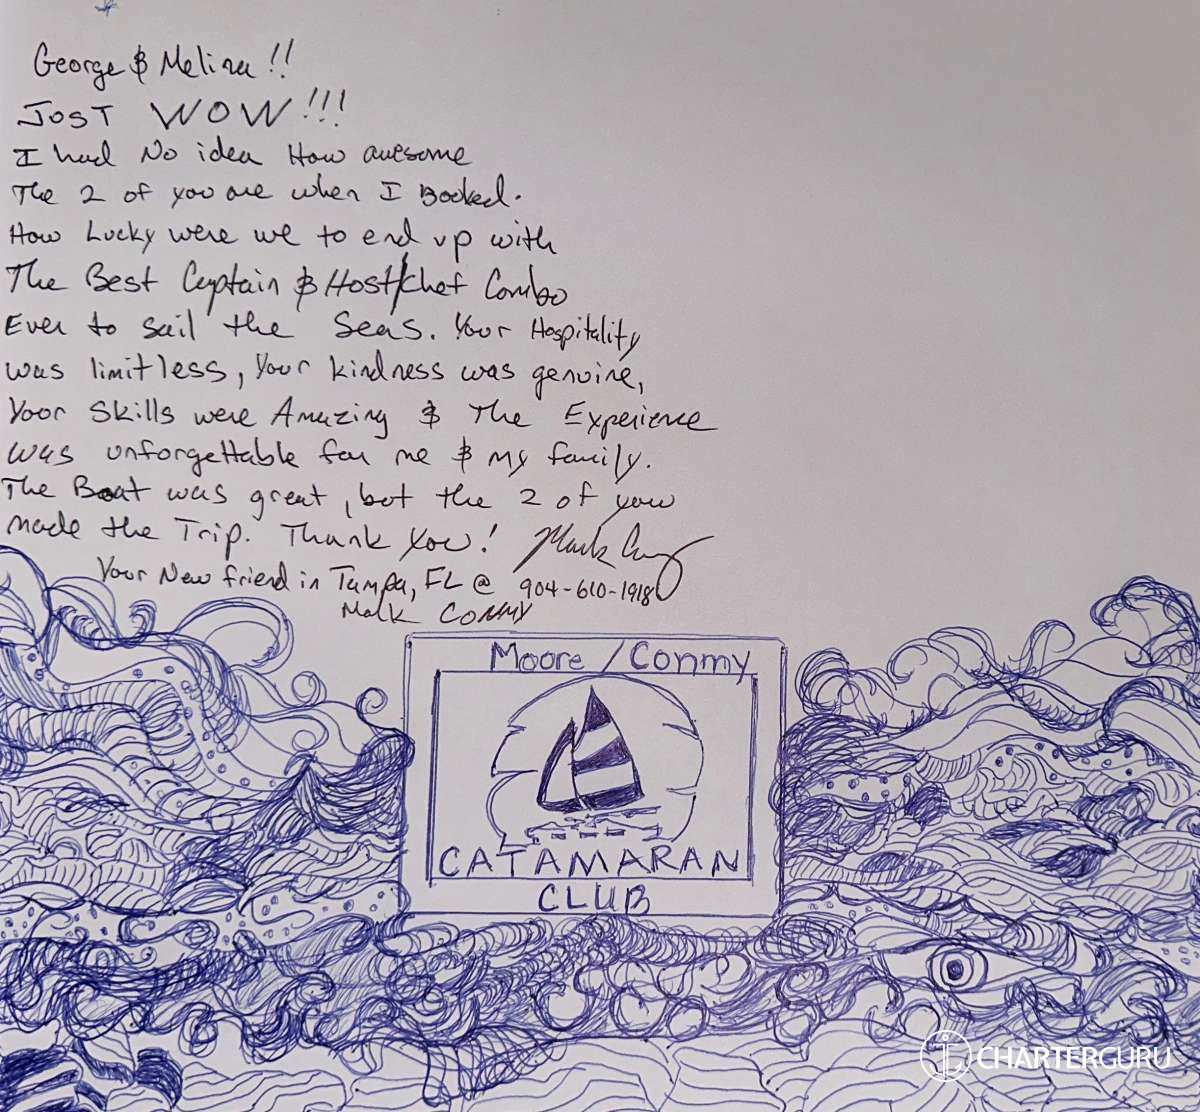 George & Melina!!
JUST WOW!!!
I had No idea How awesome
The 2 of you are when I Booked.
How Lucky were we to end up with
The Best Captain & Host/chef Combo
Ever to sail the Seas. Your Hospitality
was limitless, Your kindness was genuine,
Your Skills were Amazing & The Experience
was unforgettable for me & my family.
The Boat was great, but the 2 of you
made the Trip. Thank you! Mark Conmy
Your New friend in Tampa, FL @ 904-610-1918
Mark CONMY
Moore/Conmy
CATAMARAN
CLUB
CHARTERGURU